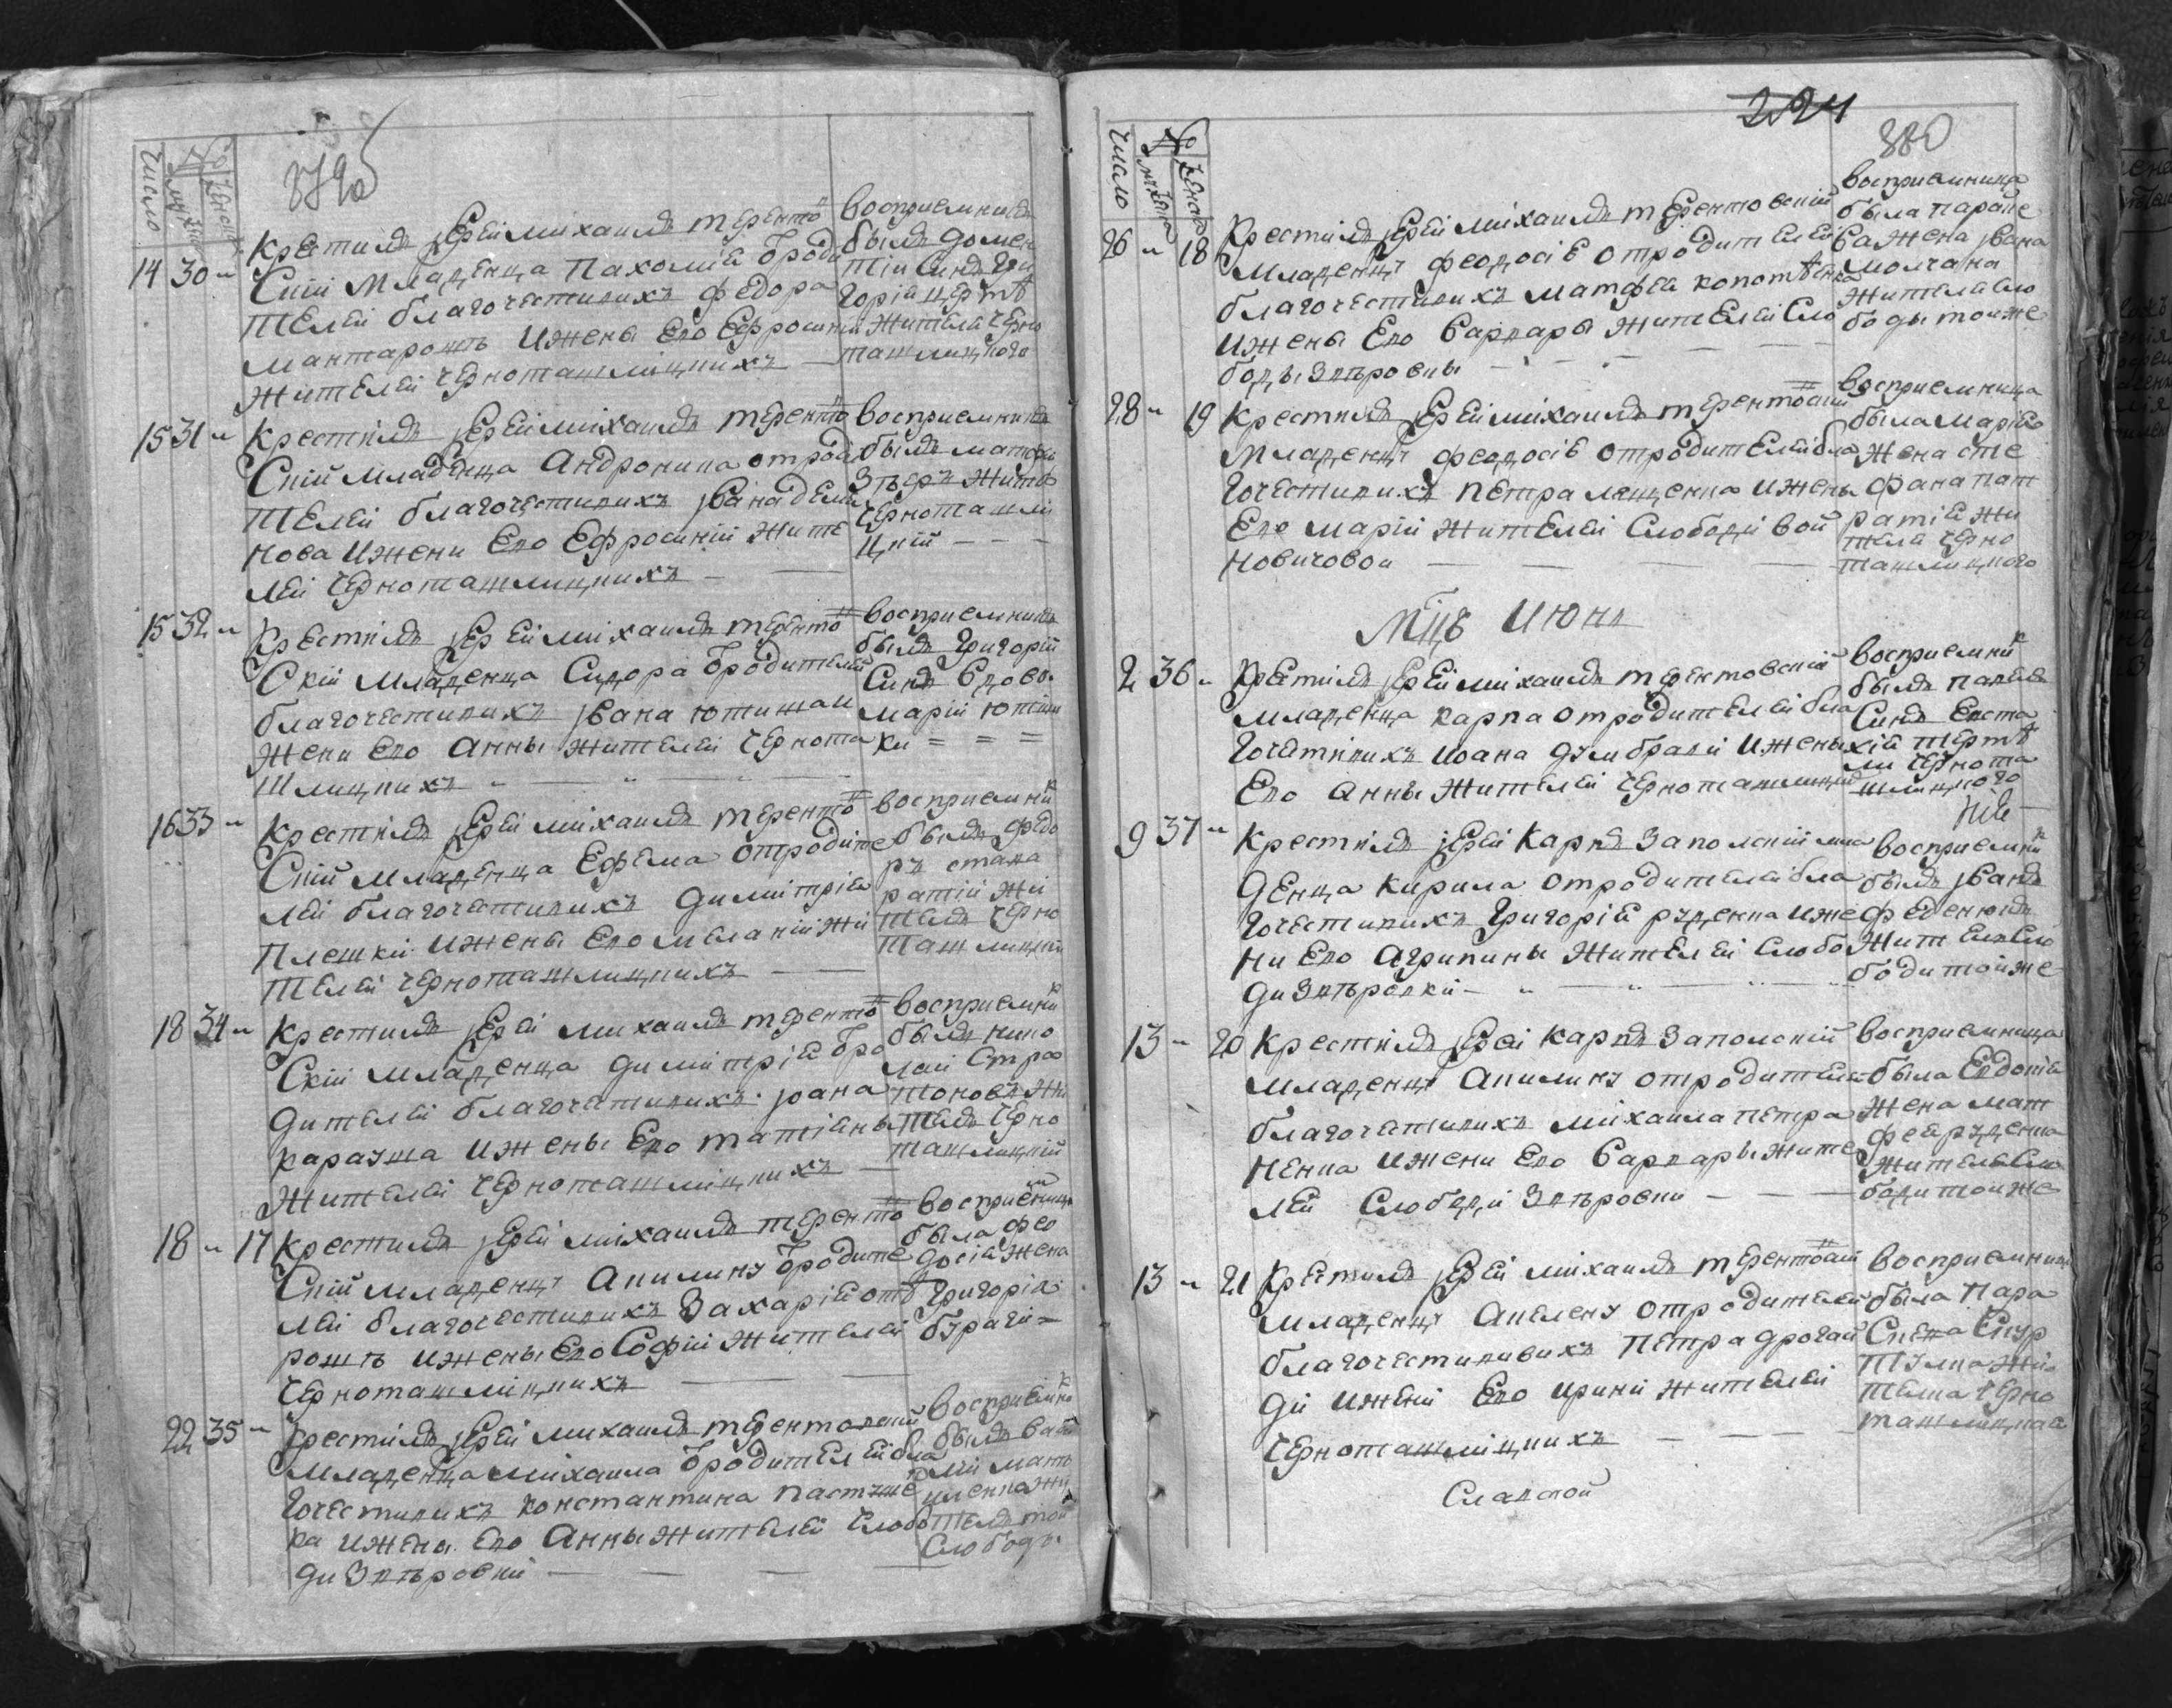 379об
Число
№
мужеска
женска
14 30 " Крестилъ іерей михаилъ теренто
Скій младенца Пахомія ѿроди
телей благочестивихъ федора
мантарошъ ижены Его Ефросини
жителей черноташлицкихъ —
восприемникъ
былъ домен
тій Синъ Гри
горія
жителя черно
ташлицкого
15 31 " Крестилъ іерей михаилъ теренто
Скій младенца Андроника отроди
телей благочестивихъ Івана деми
нова ижени Его Ефросиніи жите
лей черноташлицкихъ — —
восприемникъ
былъ матфей
Звѣръ жител
черноташли
цкій — — —
15 32 " Крестилъ іерей михаилъ теренто
Скій младенца Сидора ѿродителей
благочестивихъ Івана ютишаи
жени Его Анны жителей чернота
шлицкихъ
восприемникъ
былъ Григорій
Синъ вдово.
маріи ютиш
ки = = =
16 33 " Крестилъ іерей михаилъ теренто
Скій младенца Ефема отродите
лей благочестивихъ димитрія
Плешкій ижены Его меланіи жи
телей черноташлицкихъ — —
восприемник
былъ федо
ръ стана
ратій жи
телъ черно
ташлицкий
18 34 " Крестилъ іерей михаилъ теренто
Скій младенца димитрія ѿро
дителей благочестивихъ. Іоана
караума ижены Его татіаны
жителей черноташлицкихъ —
восприемник
былъ нико
лай Стра
тоновъ жи
телъ черно
ташлицкій
18 " 17 Крестилъ іерей михаилъ теренто
Скій младенцу Акилину ѿродите
лей благочестивихъ Захаріи
рошъ ижены Его Софіи жителей
черноташлицкихъ — —
восприемница
была фео
досія жена
Григорія
бурачи=
22 35 " Крестилъ іерей михаилъ терентовский
младенца михаила ѿродителей бла
гочестивихъ константина пастуше
ка ижены Его Анны жителей слобо
ди Звѣровки — — —
восприемник
былъ васи
лій мат
жи
телъ той
Слободы
224
380
Число
№
мужеска
женска
26 " 18 Крестилъ іерей михаилъ терентовский
младенцу феодосію отродителей
благочестивихъ матфея копотѣнка
ижены Его варвары жителей Сло
боды Звѣровки
восприемница
была параске
ва жена Івана
молчана
жителя сло
боды тоиже
28 " 19 Крестилъ іерей михаилъ терентовский
младенцу феодосію отродителей бла
гочестивихъ петра лященка ижены
Его маріи жителей Слободи вой
новичовои — — —
восприемница
была марія
жена сте
фана пат
ратія жи
теля черно
ташлицкого
мцъ Июнъ
2 36 " Крестилъ іерей михаилъ терентовский
младенца карпа отродителей бла
гочестивихъ иоана думбравы ижены
Его анны жителей черноташлицких
восприемник
былъ павелъ
Синъ Евста
хія
чернота
шлицкого
9 37 " Крестилъ іерей Карпъ Заполский мла
денца кирила отродителей бла
гочестивихъ Григорія руденка иже
ни Его Агрипины жителей слобо
ди Звѣровки —
восприемник
былъ Іванъ
феденюкъ
жител сло
боди тойже
13 " 20 Крестилъ іерей карпъ Заполский
младенцу Акилину отродителей
благочестивихъ михаила петра
ненка ижени Его варвары жите
лей Слободи Звѣровки — — —
восприемница
была Евдокія
жена мат
фея руденка
жителя сло
боди тоиже
13 " 21 Крестилъ іерей михаилъ терентовский
младенцу Акелену отродителей
благочестививихъ петра драгай
ди иженѣ Его ирини жителей
черноташлицкихъ — — —
восприемница
была Пара
жи
теля черно
ташлицкая